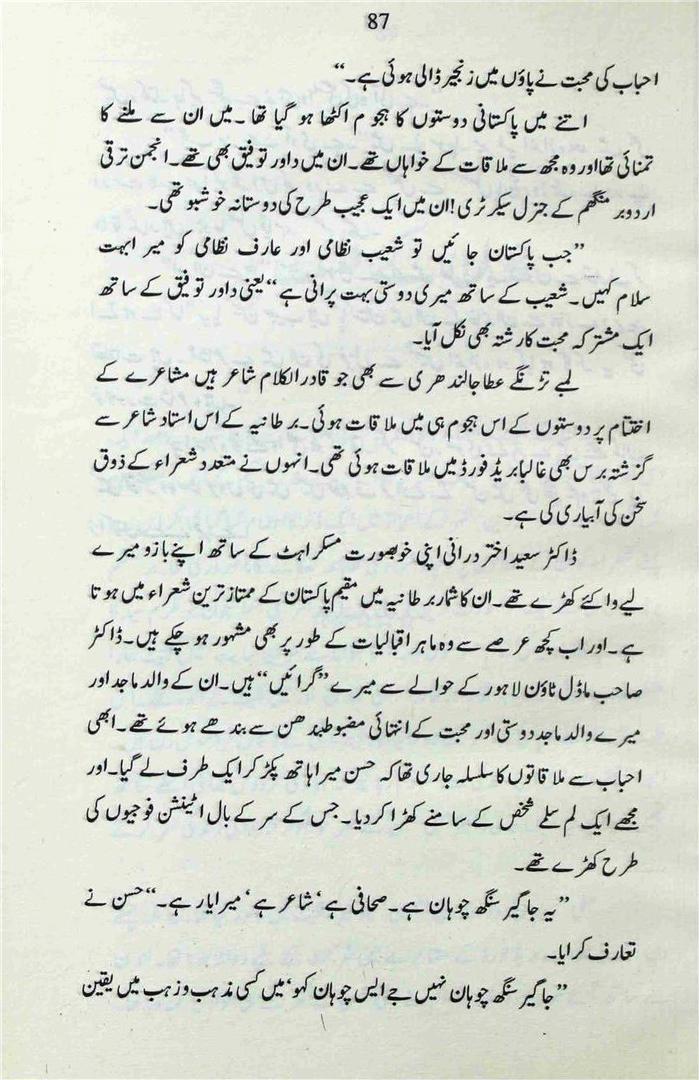 87
احباب کی محبت نے پاؤں میں زنجیر ڈالی ہوئی ہے۔“
اتنے میں پاکستانی دوستوں کا ہجوم اکٹھا ہو گیا تھا۔ میں ان سے ملنے کا
تمنائی تھا اور وہ مجھ سے ملاقات کے خواہاں تھے۔ ان میں داور توفیق بھی تھے۔ انجمن ترقی
اردو برمنگھم کے جنرل سیکرٹری! ان میں ایک عجیب طرح کی دوستانہ خوشبو تھی۔
”جب پاکستان جائیں تو شعیب نظامی اور عارف نظامی کو میرا بہت
سلام کہیں۔ شعیب کے ساتھ میری دوستی بہت پرانی ہے“ یعنی داور توفیق کے ساتھ
ایک مشترکہ محبت کا رشتہ بھی نکل آیا۔
لمبے تڑنگے عطا جالندھری سے بھی جو قادر الکلام شاعر ہیں مشاعرے کے
اختتام پر دوستوں کے اس ہجوم ہی میں ملاقات ہوئی۔ برطانیہ کے اس استاد شاعر سے
گزشتہ برس بھی غالبا بریڈ فورڈ میں ملاقات ہوئی تھی۔ انہوں نے متعدد شعراء کے ذوق
سخن کی آبیاری کی ہے۔
ڈاکٹر سعید اختر درانی اپنی خوبصورت مسکراہٹ کے ساتھ اپنے بازو میرے
لیے وا کئے کھڑے تھے۔ ان کا شمار برطانیہ میں مقیم پاکستان کے ممتاز ترین شعراء میں ہوتا
ہے۔ اور اب کچھ عرصے سے وہ ماہر اقبالیات کے طور پر بھی مشہور ہو چکے ہیں۔ ڈاکٹر
صاحب ماڈل ٹاؤن لاہور کے حوالے سے میرے ”گرائیں“ ہیں۔ ان کے والد ماجد اور
میرے والد ماجد دوستی اور محبت کے انتہائی مضبوط بندھن سے بندھے ہوئے تھے۔ ابھی
احباب سے ملاقاتوں کا سلسلہ جاری تھا کہ حسن میرا ہاتھ پکڑ کر ایک طرف لے گیا۔ اور
مجھے ایک لم سلمے شخص کے سامنے کھڑا کر دیا۔ جس کے سر کے بال اٹینشن فوجیوں کی
طرح کھڑے تھے۔
”یہ جاگیر سنگھ چوہان ہے۔ صحافی ہے‘ شاعر ہے‘ میرا یار ہے۔“ حسن نے
تعارف کرایا۔
”جاگیر سنگھ چوہان نہیں جے ایس چوہان کہو‘ میں کسی مذہب وزہب میں یقین